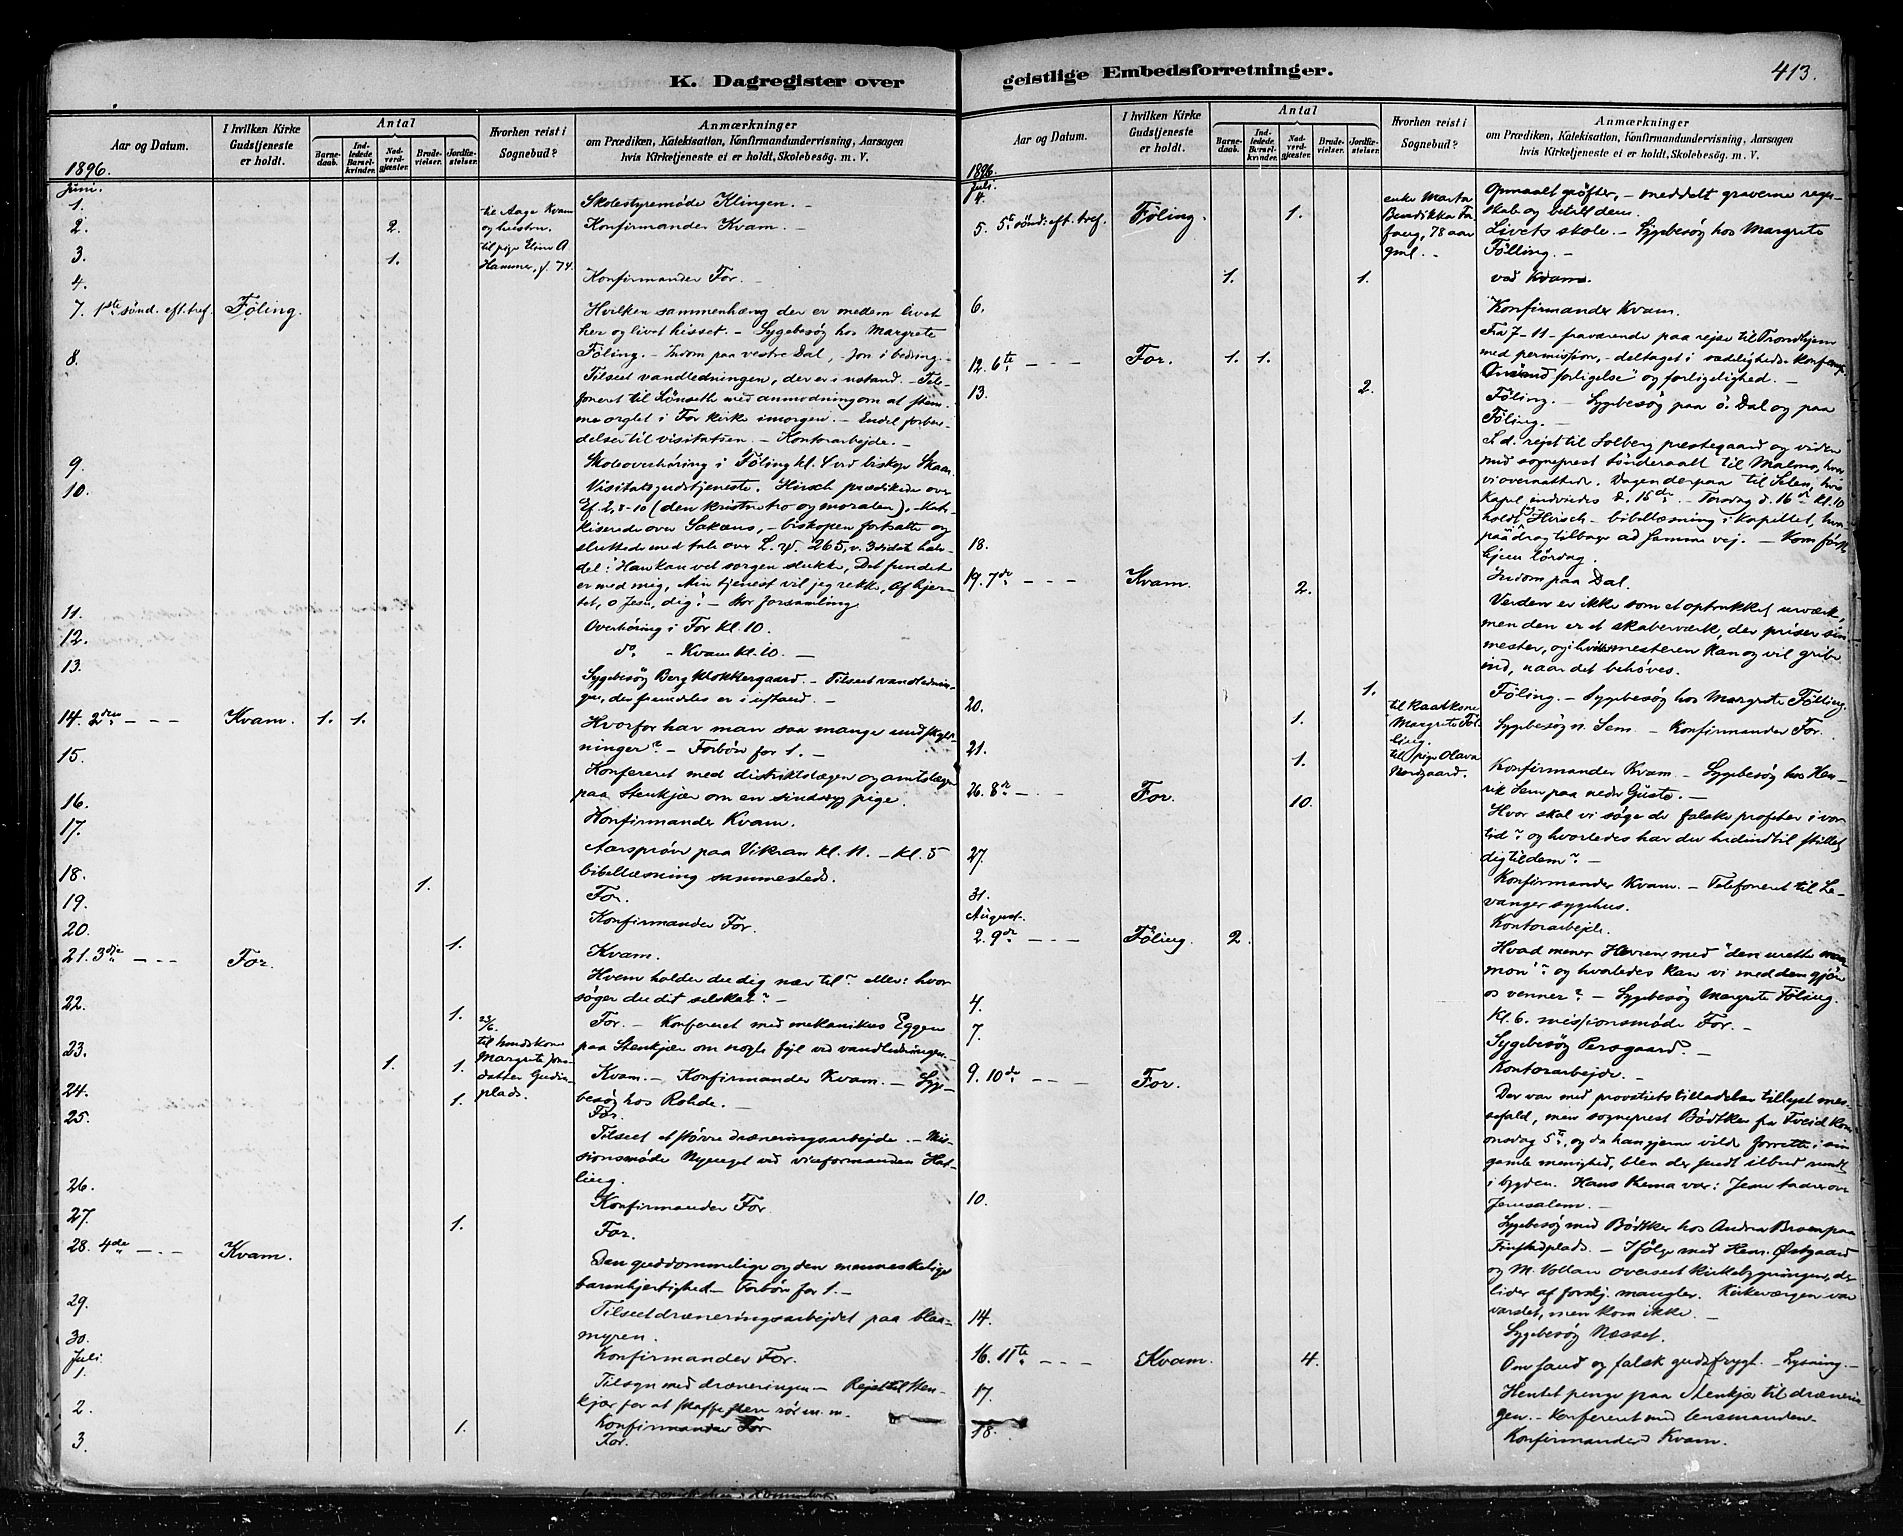 K. Dagregister over
Aar og Datum.
I hvilken Kirke
Gudstjeneste
er holdt.
Antal
Barne-
daab.
Ind-
ledede
Barsel-
kvinder.
Nad-
verd-
gjæster.
Brude-
vielser.
Jordfæ-
stelser.
Hvorhen reist i
Sognebud?
Anmærkninger
om Prædiken, Katekisation, Konfirmandundervisning, Aarsagen
hvis Kirketjeneste ei er holdt, Skolebesög. m. V.
1896.
Juni.
1. Skolestyremöde Klingen. —
2. 2. til Aage Kvam
og hustru. Konfirmander Kvam. —
3. 1. til pige Eline A
Hammer, f. 74.
4. Konfirmander For. —
7. 1ste sönd. eft. tref. Föling. Hvilken sammenhæng der er mellem livet
her og livet hisset. — Sygebesög hos Margrete
Föling. — Indom paa vestre Dal, Jon i bedring. —
8. Tilseet vandledningen, der er i ustand. — Tele-
foneret til Lönseth med anmodning om at stem-
me orglet i For kirke imorgen. — Endel forbere-
delser til visitatsen. — Kontorarbejde. —
9. Skoleoverhöring i Föling kl. 4 ved biskop Skaar.
10. Visitatsgudstjeneste. Hirsch prædikede over
Ef. 2, 8-10 (den kristne tro og moralen). Kate-
kiserede over Sakæus, — biskopen fortsatte og
sluttede med tale over L. 265, v. 3 sidste halv-
del: Han kan vel sorgen slukke, Det fundet
er med mig, Min tjenest vil jeg rekke, Af hjer-
tet, o Jesu, dig! — Stor forsamling
11. Overhöring i For kl. 10.
12. do. - Kvam kl. 10. —
13. Sygebesög Berg klokkergaard. — Tilseet vandlednin-
gen, der fremdeles er i ustand. —
14. 2den — — — Kvam. 1. 1. Hvorfor har man saa mange undskyld-
ninger? — Forbön for 1. —
15. Konfereret med distriktslægen og amtslægen
paa Stenkjær om en sindssyg pige.
16. Konfirmander Kvam.
17. Aarspröve paa Vikran kl. 11. — kl. 5
bibellæsning sammesteds.
18. 1. For.
19. Konfirmander For.
20. 1. Kvam.
21. 3die — — — For. Hvem holder du dig nær til? eller: hvor
söger du dit selskab? —
22. 1. For. — Konfereret med mekanikus Eggen
paa Stenkjær om nogle fejl ved vandledningen. —
23. 1. 1. 23/6.
til huuskone
Margrete Jons-
datter Gudin-
plads. Kvam. — Konfirmander Kvam. — Syge-
besög hos Rohde. —
24. 1. For.
25. Tilseet et större dræneringsarbejde. — Mis-
sionsmöde Nyeuget ved viceformanden Hat-
ling.
26. Konfirmander For.
27. 1. For.
28. 4de — — — Kvam. Den guddommelige og den menneskelige
barmhjertighed. — Forbön for 1. —
29. Tilseet dræneringsarbejdet paa blaa-
myren.
30. Konfirmander For.
Juli
1. Tilsyn med dræneringen — Rejst til Sten-
kjær for at skaffe flere rör m. m.
2. Konfirmander For
3. 1. For.
geistlige Embedsforretninger.
413.
Aar og Datum.
I hvilken Kirke
Gudstjeneste
er holdt.
Antal
Barne-
daab.
Ind-
ledede
Barsel-
kvinder.
Nad-
verd-
gjæster.
Brude-
vielser.
Jordfæ-
stelser.
Hvorhen reist i
Sognebud?
Anmærkninger
om Prædiken, Katekisation, Konfirmandundervisning, Aarsagen
hvis Kirketjeneste ei er holdt, Skolebesög m. V.
1896.
Juli.
4. Opmaalt gröfter, — meddelt graverne regn-
skab og betalt dem.
5. 5te sönd. eft. tref. Föling. 1. enke Marta
Bendikka Fa
78 aar
gml. Livets skole. — Sygebesög hos Margrete
Fölling. —
1. 1. ved Kvam.
6. Konfirmander Kvam.
Fra 7 - 11 - fraværende paa rejse til Trondhjem
med permission, — deltaget i sædeligheds konferense.
12. 6te — — — For. 1. 1. forligelse" og forligelighed. —
13. 2. Föling. — Sygebesög paa ö. Dal og paa
Föling. —
S. d. rejst til Solberg præstegaard og videre
med sogneprest Sönderaalt til Malmo, hvor
vi overnattede. Dagen derpaa til Selen, hvis
kapel indviedes d. 15de. — Torsdag d. 16de kl. 10
holdt Hirsch — bibellæsning i kapellet, hvor-
paa drog tilbage ad samme vej. — Kom först
hjem Lördag.
18. Indom paa Dal.
19. 7de — — — Kvam. 2. Verden er ikke som et optrukket urværk,
men den er et skaberværk, der priser sin
mester, og i hvilket mesteren kan og vil gribe
ind, naar det behöves.
20. 1. Föling. — Sygebesög hos Margrete Fölling.
1. til
Margrete Föl-
ling. Sygebesög n. Sem. — Konfirmander For.
21. 1. til pige Olava
Nordgaard. Konfirmander Kvam. — Sygebesög hos Hen-
rik Sem paa nedre Guste. —
26. 8de — — — For. 10. Hvor skal vi söge de falske profeter i vor
tid? og hvorledes har du hidindtil stillet
dig til dem? —
27. Konfirmander Kvam. — Telefoneret til Le-
vanger sygehus.
31. Kontorarbejde.
August.
2. 9de — — — Föling. 2. Hvad mener Herren med "den urette mam-
mon"? og hvorledes kan vi med den gjöre
os venner? — Sygebesög Margrete Föling.
4. Kl. 6. missionsmöde For. —
7. Sygebesög Persgaard. —
Kontorarbejde. —
9. 10de — — — For. Der var med provstiets tilladelse tillyst mes-
sefald, men sogneprest Bödtker fra Treid kom
onsdag 5te, og da han gjerne vilde forrette i sin
gamle menighed, blev der sendt tilbud rundt
i bygden. Hans thema var: Jesu taarer over
Jerusalem. —
10. Sygebesög med Bödtker hos Andrea Bruem paa
— Ifölge med Hem. Östgaard
og M. Vollan overseet kirkebygningen, der
lider af forskj. mangler. Kirkeværgen var
varslet, men kom ikke.
14. Sygebesög Næsset.
16. 11te — — — Kvam. 4. Om sand og falsk gudsfrygt. — Lysning. —
17. Hentet penge paa Stenkjær til drænerin-
gen. — Konfereret med lensmanden.
18. Konfirmander Kvam.